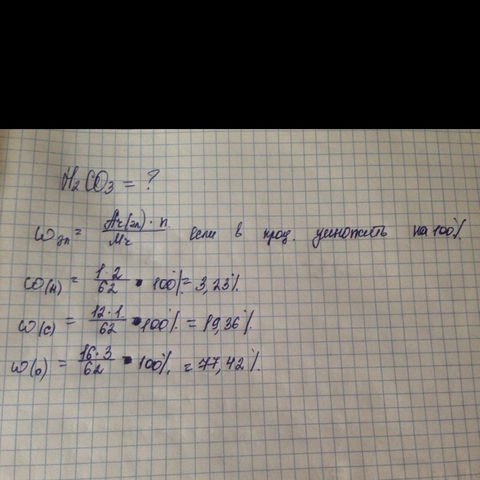 H₂CO₃ = ?
ω эл = Ar(эл) · n / Mr если в проц. умножить на 100%
ω(н) = 1·2 / 62 · 100% = 3,23%
ω(с) = 12·1 / 62 · 100% = 19,36%.
ω(о) = 16·3 / 62 · 100% = 77,42%.